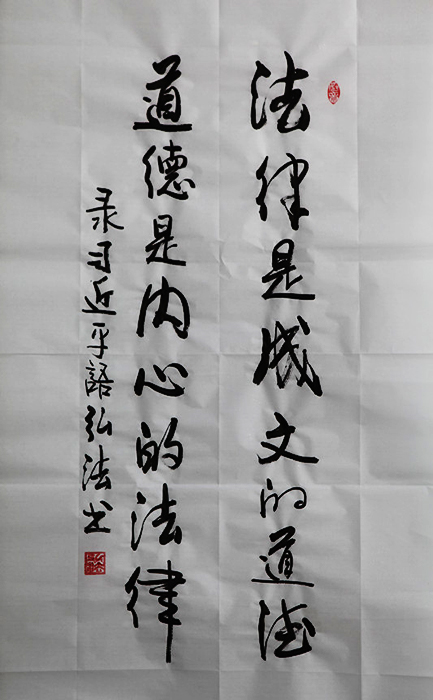 法律是成文的道德
道德是内心的法律
录习近平語弘法书